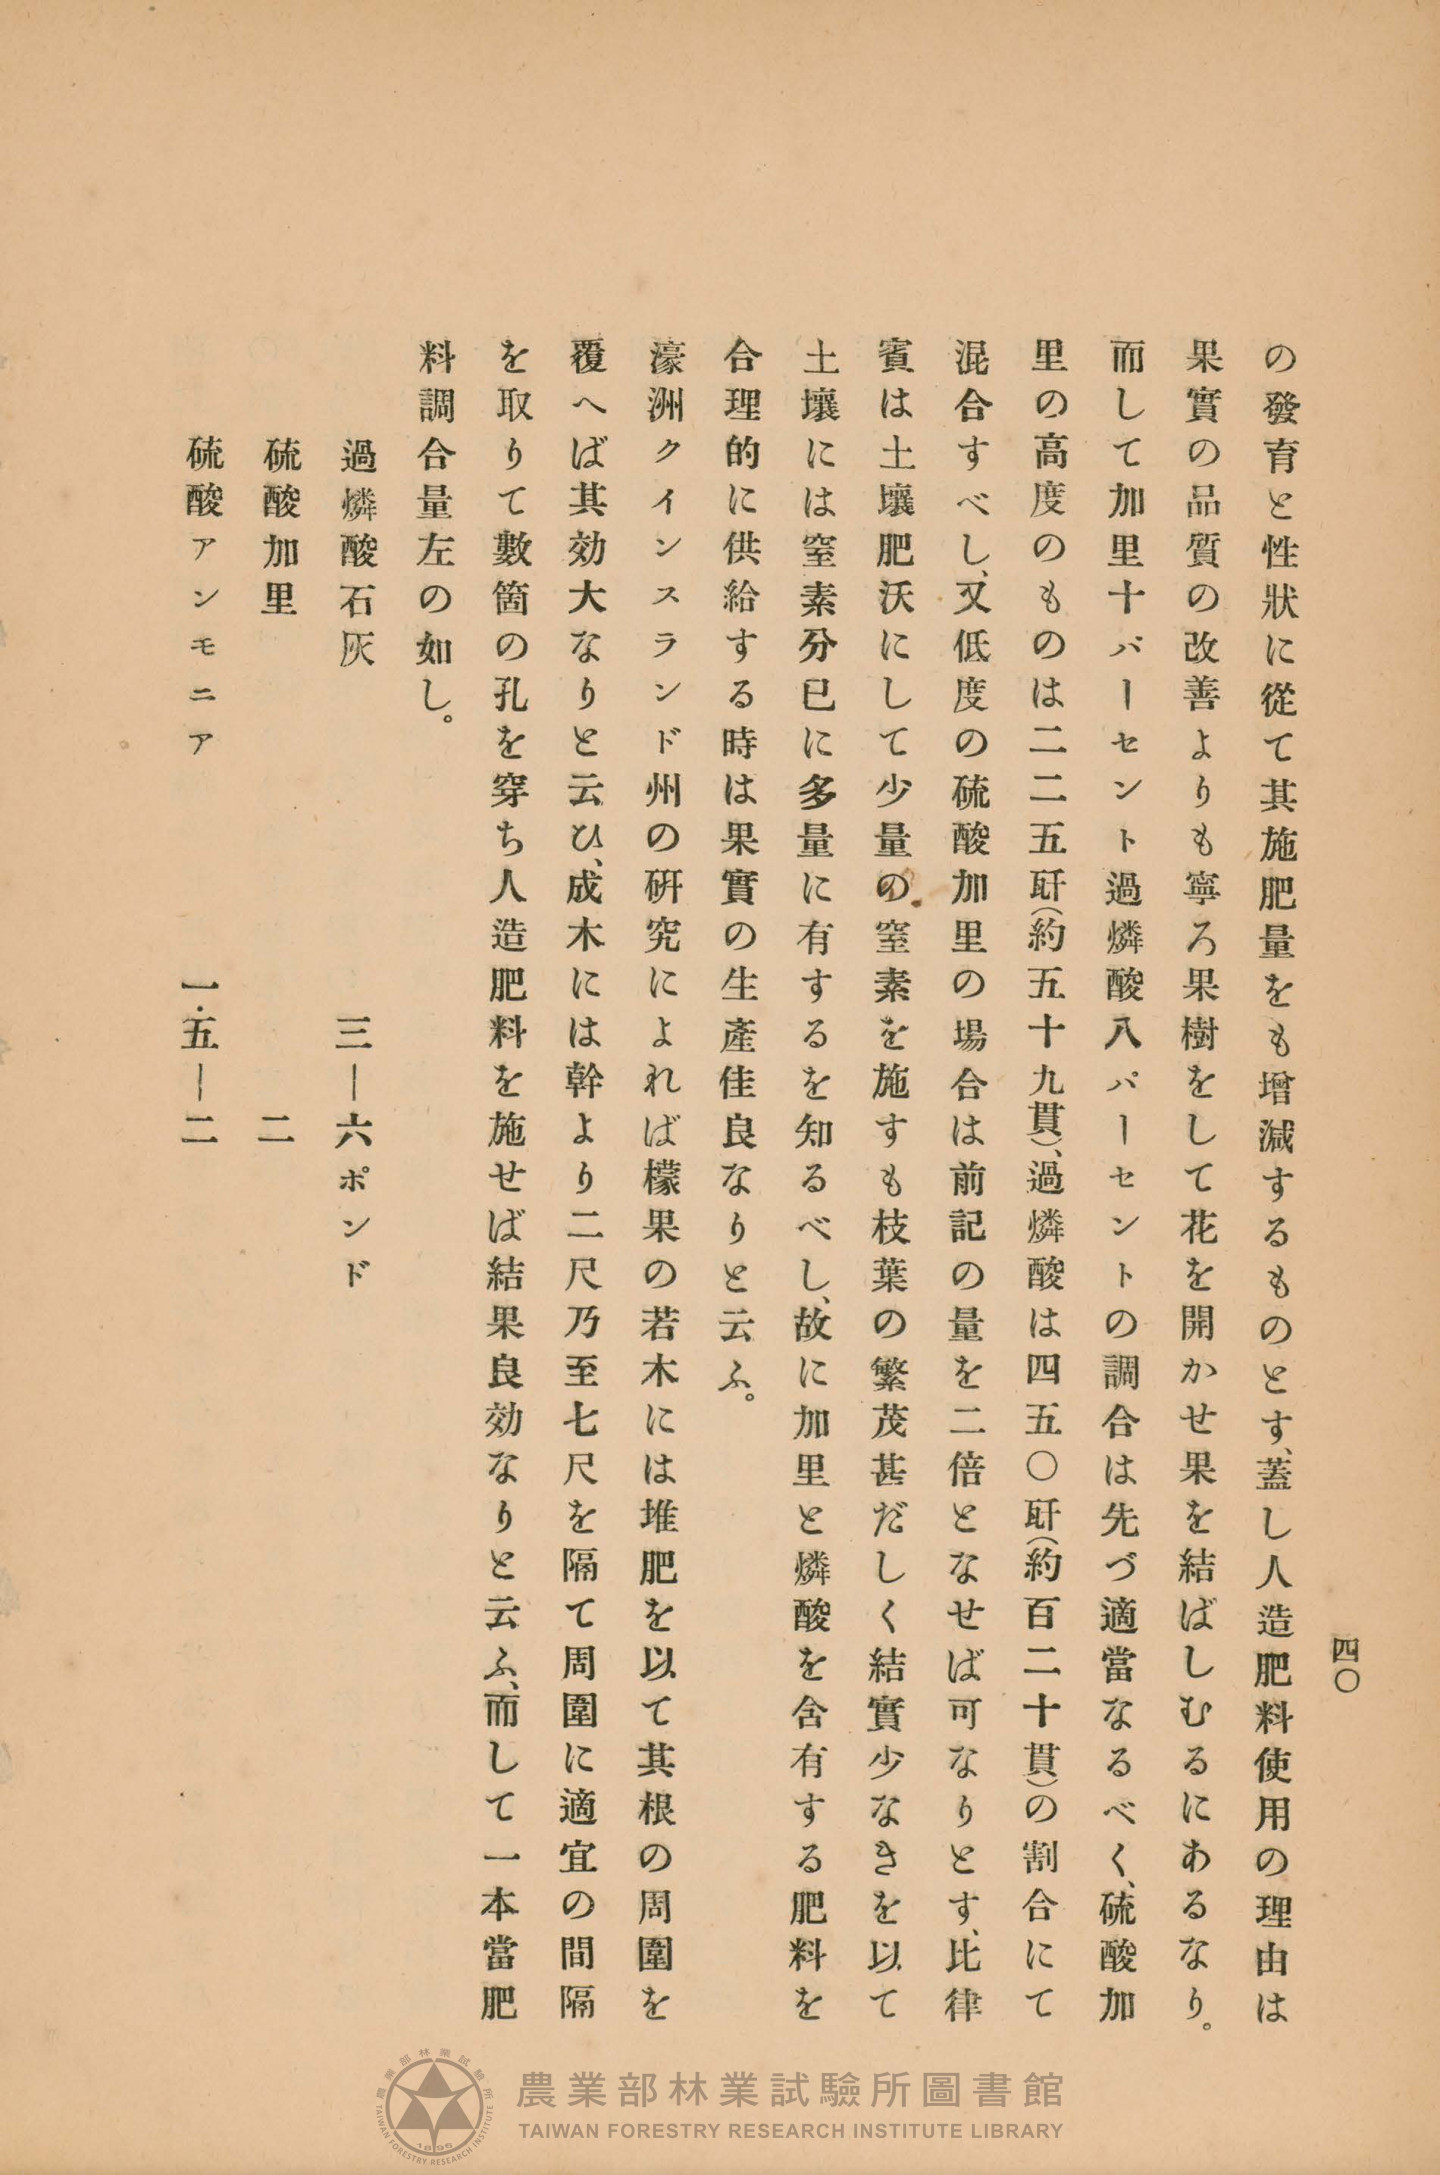 四〇
の發育と性狀に從て其施肥量をも增減するものとす、蓋し人造肥料使用の理由は
果實の品質の改善よりも寧ろ果樹をして花を開かせ果を結ばしむるにあるなり。
而して加里十パーセント過燐酸八パーセントの調合は先づ適當なるべく、硫酸加
里の高度のものは二二五瓩(約五十九貫)、過燐酸は四五〇瓩(約百二十貫)の割合にて
混合すべし、又低度の硫酸加里の場合は前記の量を二倍となせば可なりとす、比律
賓は土壤肥沃にして少量の窒素を施すも枝葉の繁茂甚だしく結實少なきを以て
土壤には窒素分已に多量に有するを知るべし、故に加里と燐酸を含有する肥料を
合理的に供給する時は果實の生產佳良なりと云ふ。
濠洲クインスランド州の硏究によれば檬果の若木には堆肥を以て其根の周圍を
覆へば其効大なりと云ひ、成木には幹より二尺乃至七尺を隔て周圍に適宜の間隔
を取りて數箇の孔を穿ち人造肥料を施せば結果良効なりと云ふ、而して一本當肥
料調合量左の如し。
過燐酸石灰 三―六ポンド
硫酸加里 二
硫酸アンモニア 一・五―二
農業部林業試驗所圖書館
TAIWAN FORESTRY RESEARCH INSTITUTE LIBRARY
農業部林業試驗所
TAIWAN FORESTRY RESEARCH INSTITUTE
1896